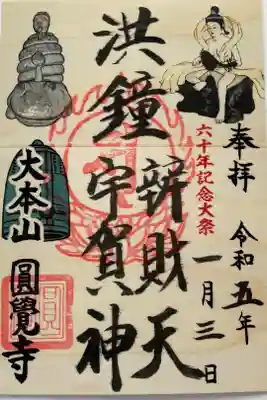 奉拝
令和五年
一月三日
六十年記念大祭
辨財天
洪鐘
宇賀神
大本山
圓覺寺
圓